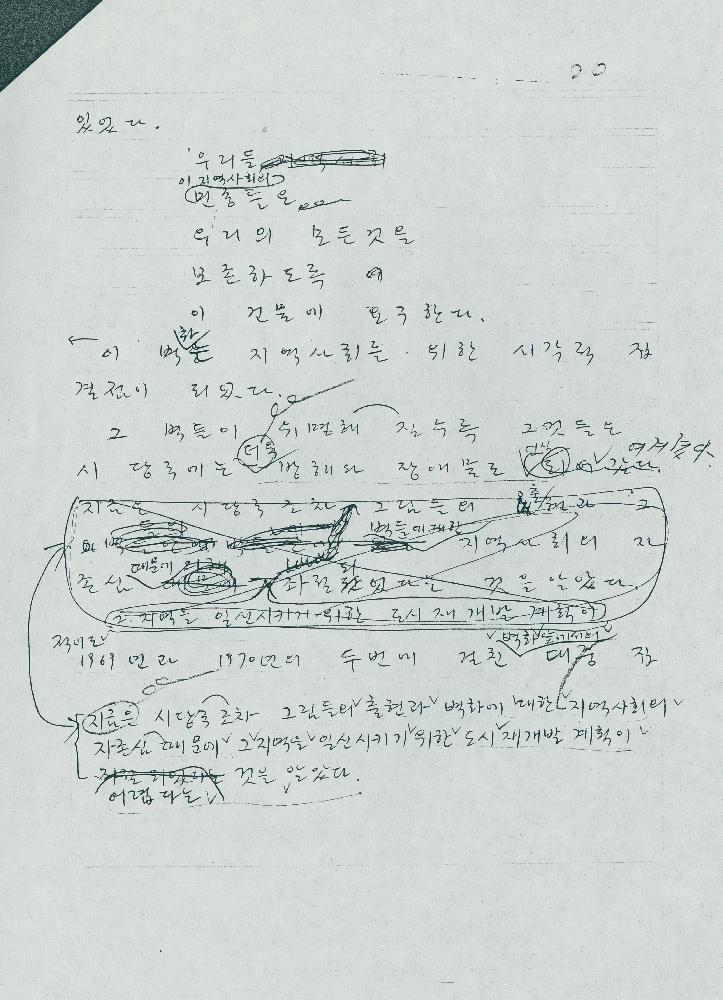 있었다.
우리들
이 지역사회의
민중들은
우리의 모든것을
보존하도록
이 건물에 요구한다.
이 벽화는 지역사회를 위한 시각적 집
결점이 되었다.
그 벽들이 유명해 질수록 그것들은
시 당국에는 더욱 방해와 장애물로 여겨졌다.
지금은 시당국 조차 그림들의 출현과 그
벽들에 대한 지역사회의 자
존심 때문에 좌절되었다는 것을 알았다.
그 지역을 일신시키기 위한 도시 재개발 계획이
적어도
1969년과 1970년의 두번에 걸친 벽화들에서의 대중 집
지금은 시당국 조차 그림들의 출현과 벽화에 대한 지역사회의
자존심 때문에 그 지역을 일신시키기 위한 도시 재개발 계획이
것을 알았다.
어렵다는